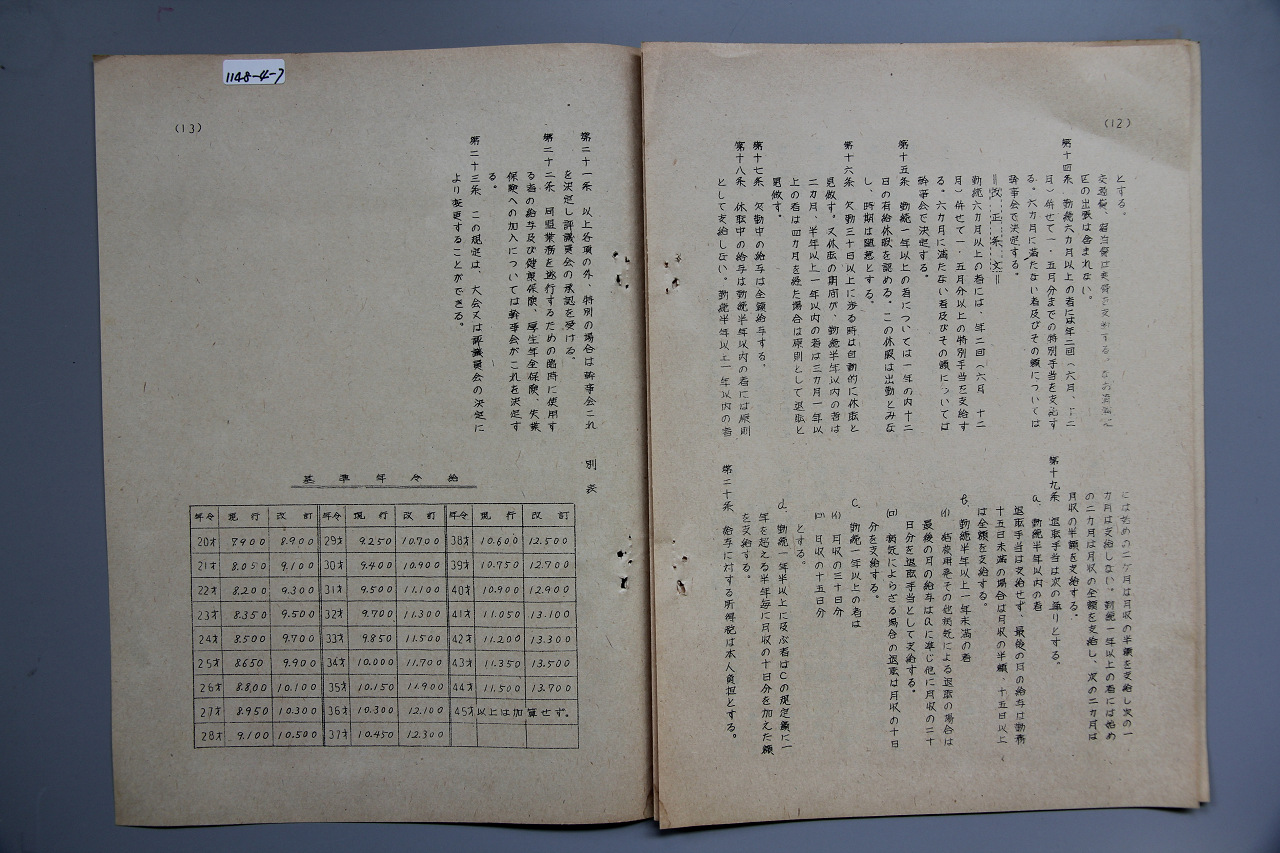 (12)
とする。
交通費、宿泊費は実費を支給する。なお
区の出張は含まれない。
第十四条 勤続六カ月以上の者には年二回(六月、十二
月)併せて一・五月分までの特別手当を支給す
る。六カ月に満たない者及びその額については
幹事会で決定する。
=改正条文=
勤続六カ月以上の者には、年二回(六月、十二
月)併せて一・五月分以上の特別手当を支給す
る。六カ月に満たない者及びその額については
幹事会で決定する。
第十五条 勤続一年以上の者については一年の内十二
日の有給休暇を認める。この休暇は出勤とみな
し、時期は随意とする。
第十六条 欠勤三十日以上に渉る時は自動的に休職と
見做す。又休職の期間が、勤続半年以内の者は
二カ月、半年以上一年以内の者は三カ月一年以
上の者は四カ月を経た場合は原則として退職と
見做す。
第十七条 欠勤中の給与は全額給与する。
第十八条 休職中の給与は勤続半年以内の者には原則
として支給しない。勤続半年以上一年以内の者
には始めの二ケ月は月収の半額を支給し次の一
カ月は支給しない。勤続一年以上の者には始め
の二カ月は月収の全額を支給し、次の二カ月は
月収の半額を支給する。
第十九条 退職手当は次の通りとする。
a、勤続半年以内の者
退職手当は支給せず、最後の月の給与は勤務
十五日未満の場合は月収の半額、十五日以上
は全額を支給する。
b、勤続半年以上一年未満の者
(イ) 結核発その他病気による退職の場合は
最後の月の給与はaに準じ他に月収の二十
日分を退職手当として支給する。
(ロ) 病気によらざる場合の退職は月収の十日
分を支給する。
C、勤続一年以上の者は
(イ) 月収の三十日分
(ロ) 月収の十五日分
とする。
d、勤続一年半以上に及ぶ者はCの規定額に一
年を起える半年毎に月収の十日分を加えた額
を支給する。
第二十条、給与に対する所得税は本人負担とする。
1148-4-7
(13)
第二十一条 以上各項の外、特別の場合は幹事会これ
を決定し評議員会の承認を受ける。
第二十二条 同盟業務を遂行するための臨時に使用す
る者の給与及び健康保険、厚生年金保険、失業
保険への加入については幹事会がこれを決定す
る。
第二十三条 この規定は、大会又は評議員会の決定に
より変更することができる。
別表
基準年令給
年令 現行 改訂 年令 現行 改訂 年令 現行 改訂
20才 7900 8.900 29才 9.250 10.700 38才 10.600 12.500
21才 8.050 9.100 30才 9.400 10.900 39才 10.750 12.700
22才 8.200 9.300 31才 9.500 11.100 40才 10.900 12.900
23才 8.350 9.500 32才 9.700 11.300 41才 11.050 13.100
24才 8.500 9.700 33才 9.850 11.500 42才 11.200 13.300
25才 8650 9.900 34才 10.000 11.700 43才 11.350 13.500
26才 8.800 10.100 35才 10.150 11.900 44才 11.500 13.700
27才 8.950 10.300 36才 10.300 12.100 45才以上は加算せず。
28才 9.100 10.500 37才 10.450 12.300